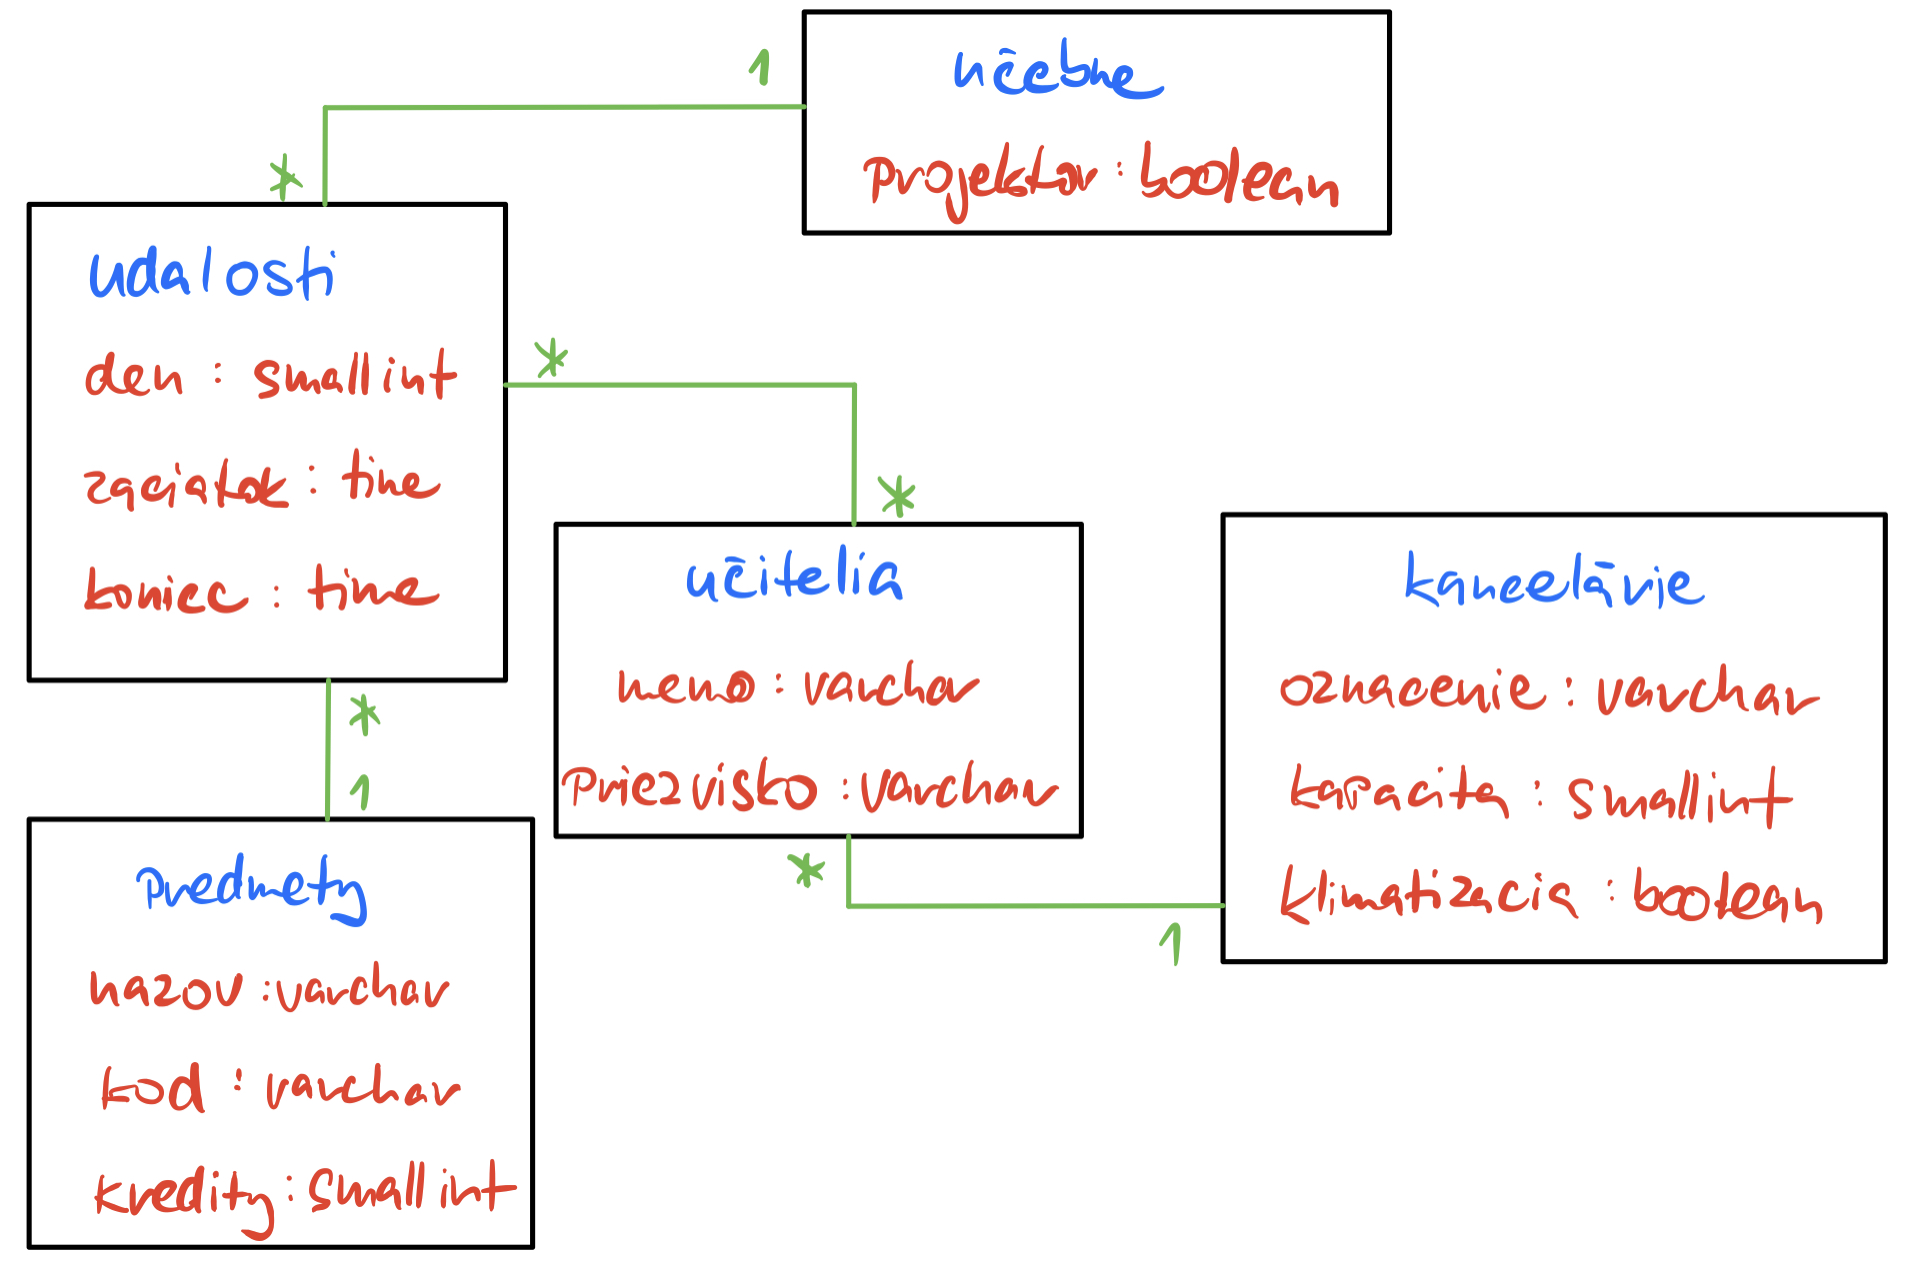 učebne
projektor : boolean
1
*
udalosti
den : smallint
zaciatok : time
koniec : time
*
*
učitelia
meno : varchar
priezvisko : varchar
kancelárie
oznacenie : varchar
kapacita : smallint
klimatizacia : boolean
*
1
*
1
predmety
nazov : varchar
kod : varchar
kredity : smallint